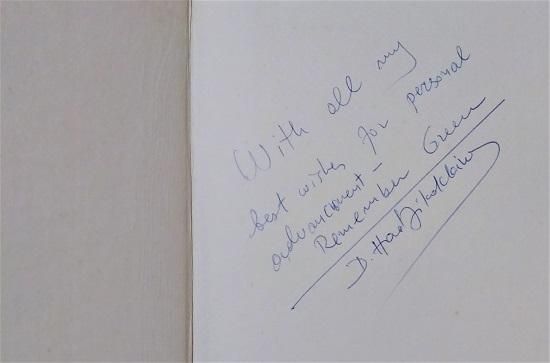 With all my
best wishes for personal
advancement –
Remember Green
D.